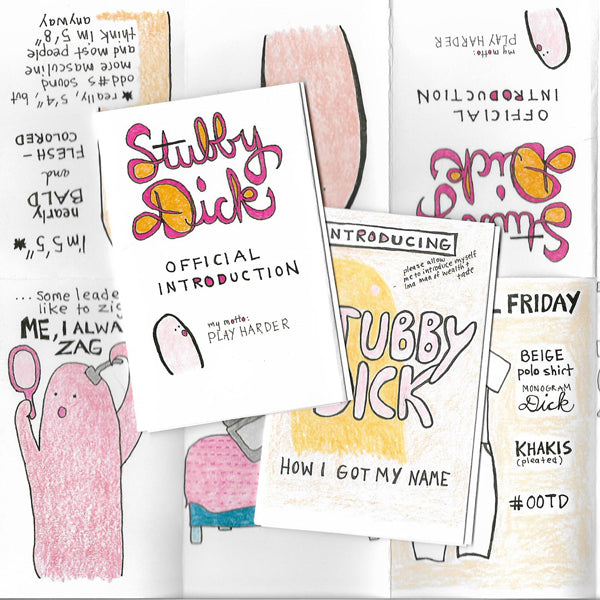 * really, 5'4", but
odd #s sound
more masculine
and most people
think I'm 5'8"
anyway
* I'm 5'5"
nearly
BALD
and
FLESH-
COLORED
my motto:
PLAY HARDER
OFFICIAL
INTRODUCTION
Stubby
Dick
Stubby
Dick
OFFICIAL
INTRODUCTION
my motto:
PLAY HARDER
INTRODUCING
please allow
me to introduce myself
I'm a man of wealth +
taste
STUBBY
DICK
HOW I GOT MY NAME
...some leade
like to zig
ME, I ALWA
ZAG
L FRIDAY
BEIGE
polo shirt
MONOGRAM
Dick
KHAKIS
(pleated)
#OOTD